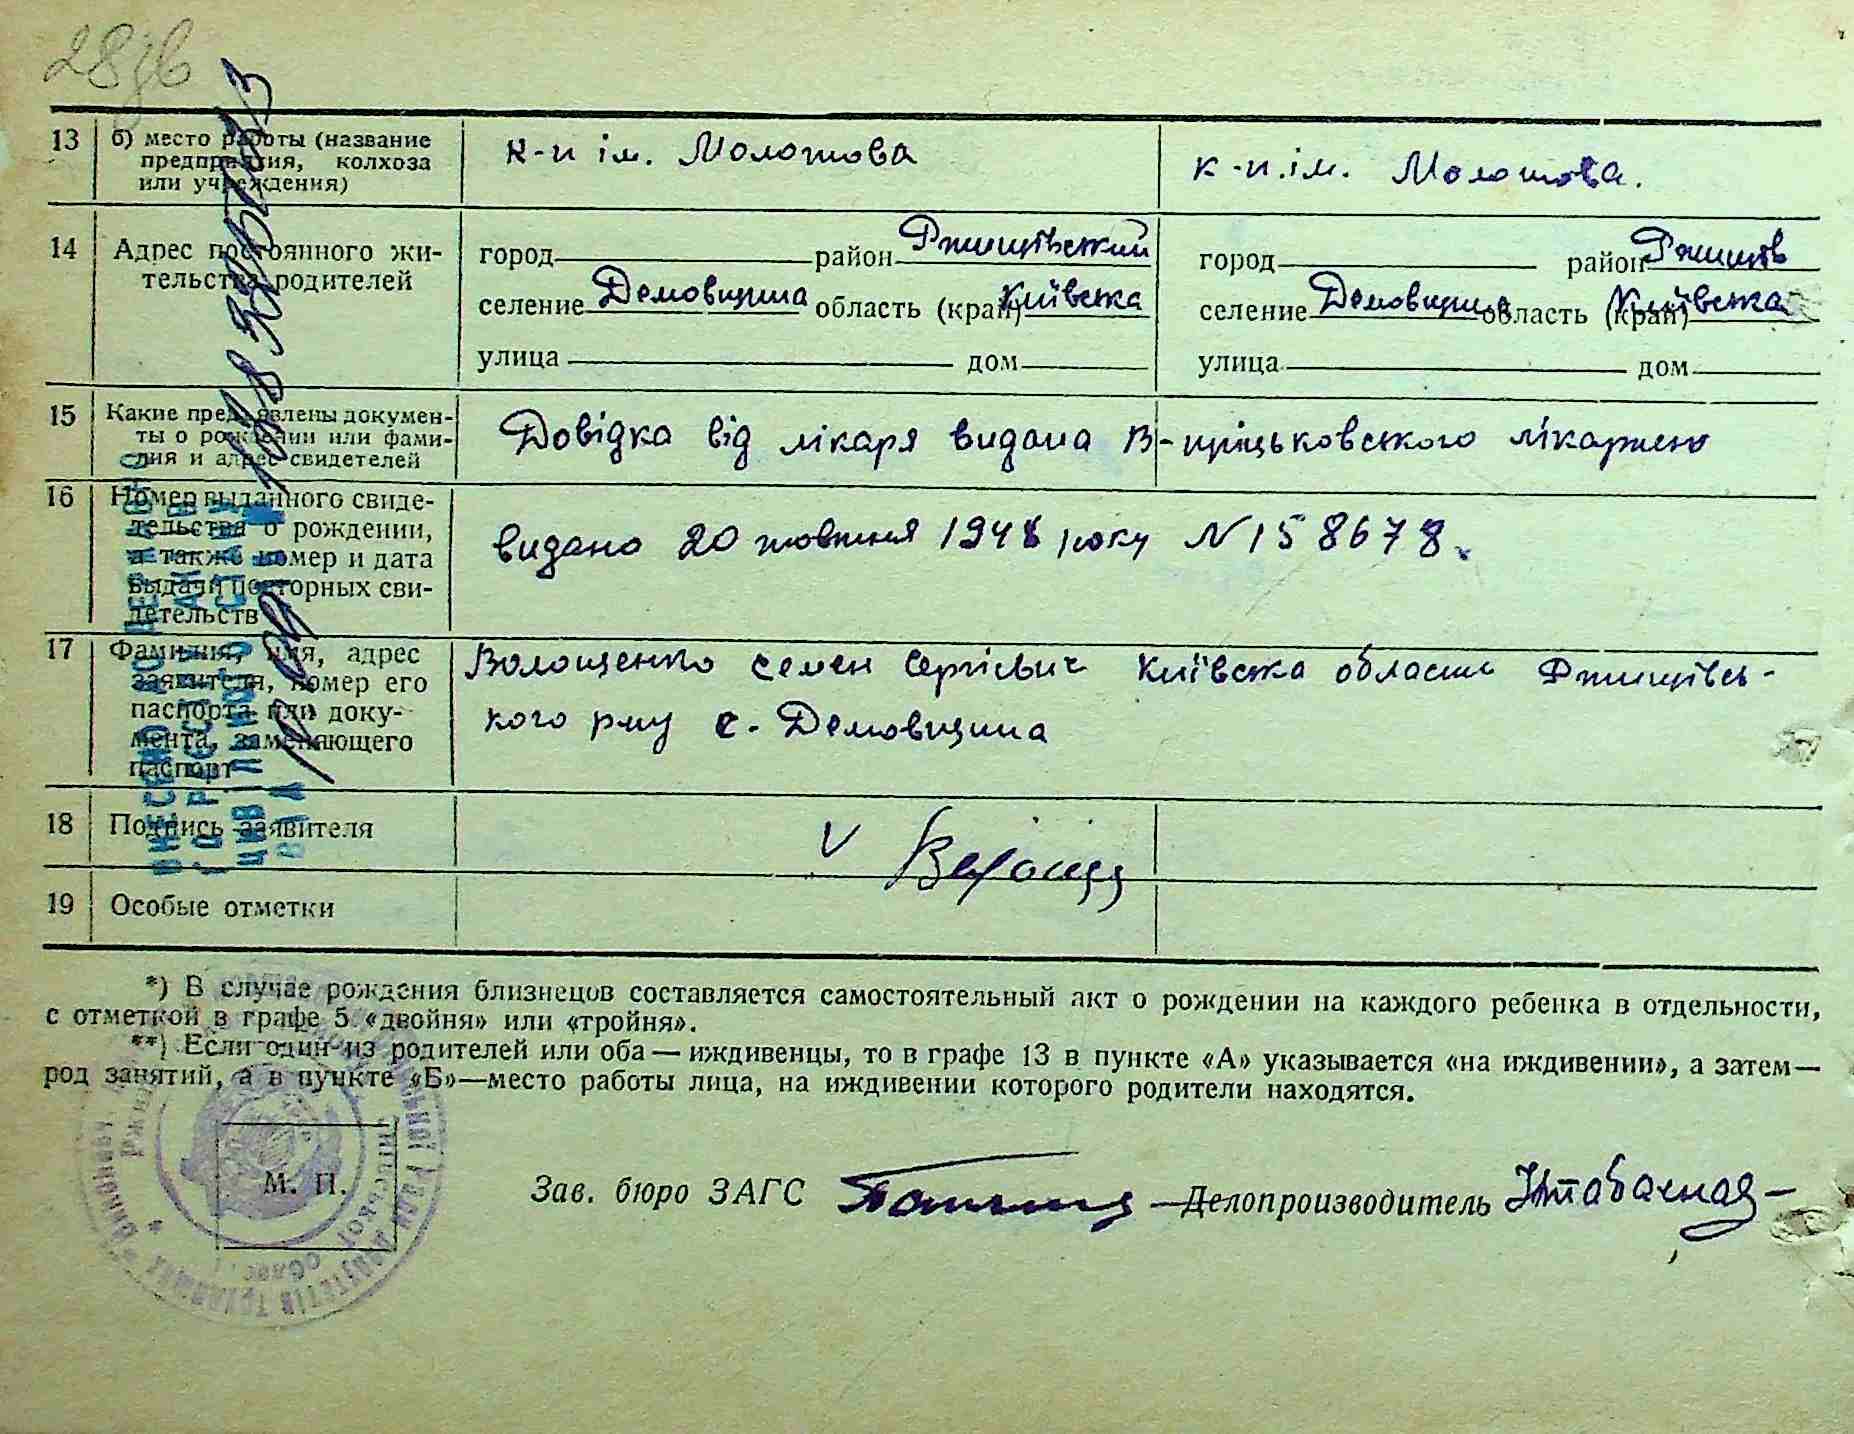 28зв
13 б) место работы (название предприятия, колхоза или учреждения)
к-п ім. Молотова
к-п. ім. Молотова.
14 Адрес постоянного жительства родителей
город район Ржищівський
селение Демовщина область (край) Київська
улица дом
город район Ржищів
селение Демовщина область (край) Київська
улица дом
15 Какие предъявлены документы о рождении или фамилия и адрес свидетелей
Довідка від лікаря видана лікарнею
16 Номер выданного свидетельства о рождении, а также номер и дата выдачи повторных свидетельств
видано 20 жовтня 1948 року N 158678.
17 Фамилия, имя, адрес заявителя, номер его паспорта или документа, заменяющего паспорт
Волощенко Семен Сергієвич Київська область Ржищівсь-
кого р-ну с. Демовщина
18 Подпись заявителя
V
19 Особые отметки
ВНЕСЕНО ДО ДЕРЖАВНОГО
*) В случае рождения близнецов составляется самостоятельный акт о рождении на каждого ребенка в отдельности,
с отметкой в графе 5 «двойня» или «тройня».
**) Если один из родителей или оба — иждивенцы, то в графе 13 в пункте «А» указывается «на иждивении», а затем—
род занятий, а в пункте «Б»—место работы лица, на иждивении которого родители находятся.
М. П.
Зав. бюро ЗАГС Делопроизводитель Табачная